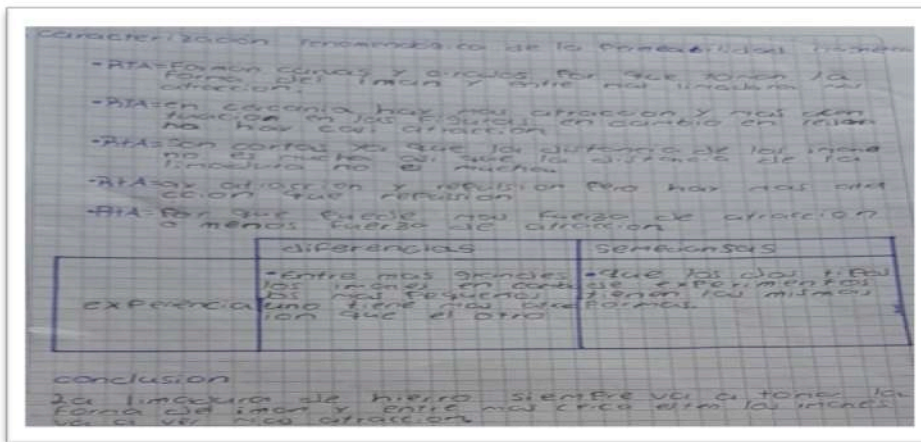 caracterización fenomenológica de la
-RTA=Forman curvas y circulos por que toman la
forma del iman y entre mas limadura mas
atracción.
-RTA=en cercania hay mas atraccion y mas
en las figuras en cambio en
no hay casi atracción
-RTA=son cortas ya que la distancia de los
no es mucha asi que la distancia de la
limadura no e mucha
-RTA=ay atracción y repulsion pero hay mas
que repulsion
-RTA=por que puede mas fuerza de atraccion
o menos fuerza de atraccion
diferencias
semejansas
experiencia
-Entre mas grandes
los imanes en
los mas pequeños
uno tiene mas
que el otro
-que los dos tipos
de experimentos
tienen las mismas
formas.
conclusion
La limadura de hierro siempre va a tomar la
forma de iman y entre mas cerca esten los imanes
va a ver mas atraccion